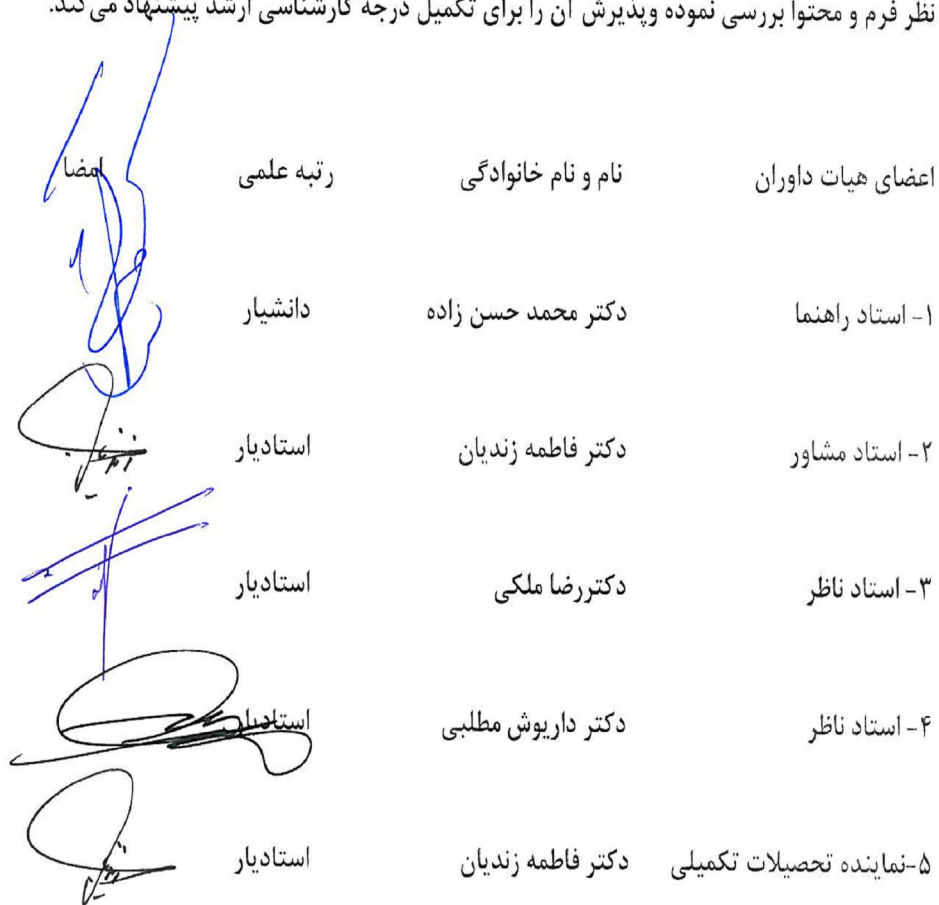 نظر فرم و محتوا بررسی نموده وپذیرش آن را برای تکمیل درجه کارشناسی ارشد پیشنهاد می کند.
اعضای هیات داوران نام و نام خانوادگی رتبه علمی امضا
۱- استاد راهنما دکتر محمد حسن زاده دانشیار
۲- استاد مشاور دکتر فاطمه زندیان استادیار
۳- استاد ناظر دکتررضا ملکی استادیار
۴- استاد ناظر دکتر داریوش مطلبی استادیار
۵-نماینده تحصیلات تکمیلی دکتر فاطمه زندیان استادیار